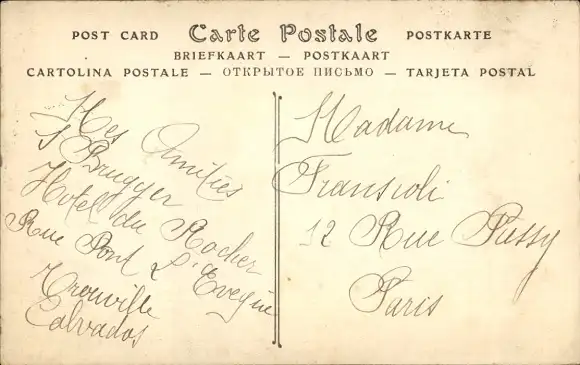 POST CARD Carte Postale POSTKARTE
BRIEFKAART — POSTKAART
CARTOLINA POSTALE — ОТКРЫТОЕ ПИСЬМО — TARJETA POSTAL
Mes Amities
J Brugger
Hotel du Rocher
Rue Pont L'Evêque
Trouville
Calvados
Madame
Fransioli
12 Rue Pussy
Paris